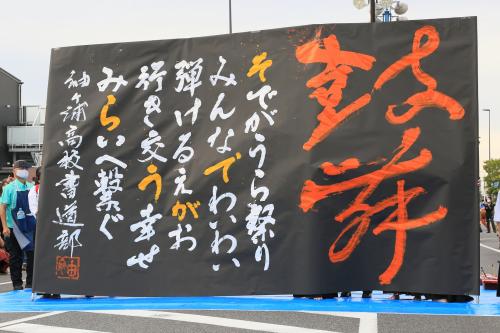 鼓舞
そでがうら祭り
みんなでわいわい
弾けるえがお
行き交う幸せ
みらいへ繋ぐ
袖ヶ浦高校書道部